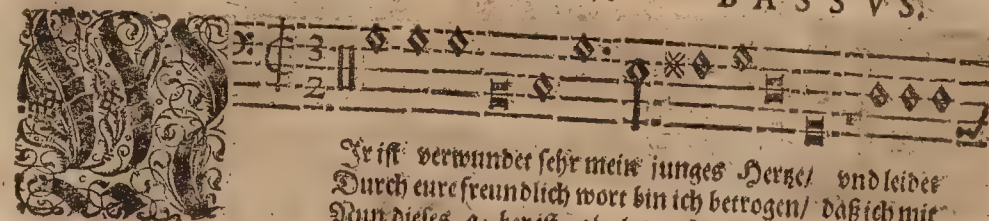 BASSVS.
3
2
MIr ist verwundet sehr mein junges Hertze/ vnd leidet
Durch eure freundlich wort bin ich betrogen/ daß ich mit
Nun dieses